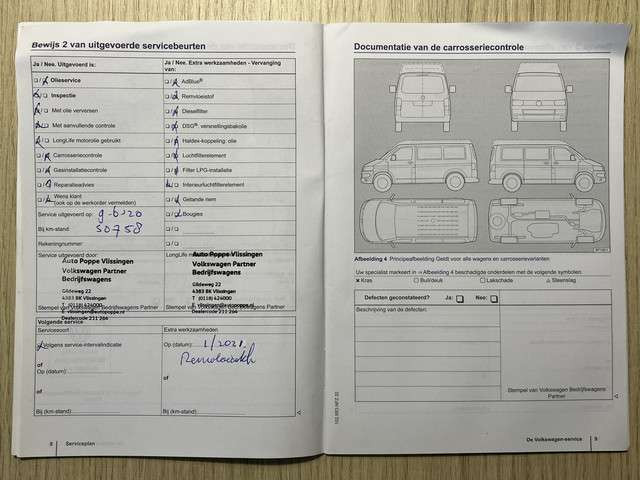 Bewijs 2 van uitgevoerde servicebeurten
Ja / Nee. Uitgevoerd is:
Olieservice
Inspectie
Met olie verversen
Met aanvullende controle
LongLife motorolie gebruikt
Carrosseriecontrole
Gasinstallatiecontrole
Reparatieadvies
Wens klant
(ook op de werkorder vermelden)
Service uitgevoerd op: 9-6-20
Bij km-stand: 50758
Rekeningnummer:
Auto Poppe Vlissingen
Volkswagen Partner
Bedrijfswagens
Gildeweg 22
4383 BK Vlissingen
T (0118) 424000
E vlissingen@autopoppe.nl
Dealercode 211 264
Stempel van Volkswagen Bedrijfswagens Partner
Ja / Nee. Extra werkzaamheden - Vervanging
van:
AdBlue®
Remvloeistof
Dieselfilter
DSG®- versnellingsbakolie
Haldex-koppeling: olie
Luchtfilterelement
Filter LPG-installatie
Interieurluchtfilterelement
Getande riem
Bougies
Auto Poppe Vlissingen
Volkswagen Partner
Bedrijfswagens
Gildeweg 22
4383 BK Vlissingen
T (0118) 424000
E vlissingen@autopoppe.nl
Dealercode 211 264
Stempel van Volkswagen Bedrijfswagens Partner
Volgende service
Servicesoort
Volgens service-intervalindicatie
of
Op (datum)
of
Bij (km-stand)
Extra werkzaamheden
Op (datum): 1/2021
of
Bij (km-stand)
8 Serviceplan
Documentatie van de carrosseriecontrole
Afbeelding 4 Principeafbeelding Geldt voor alle wagens en carrosserievarianten
Uw specialist markeert in ⇒ Afbeelding 4 beschadigde onderdelen met de volgende symbolen.
× Kras □ Buil/deuk ○ Lakschade △ Steenslag
Defecten geconstateerd? Ja: Nee:
Beschrijving van de defecten:
Stempel van Volkswagen Bedrijfswagens
Partner
De Volkswagen-service 9